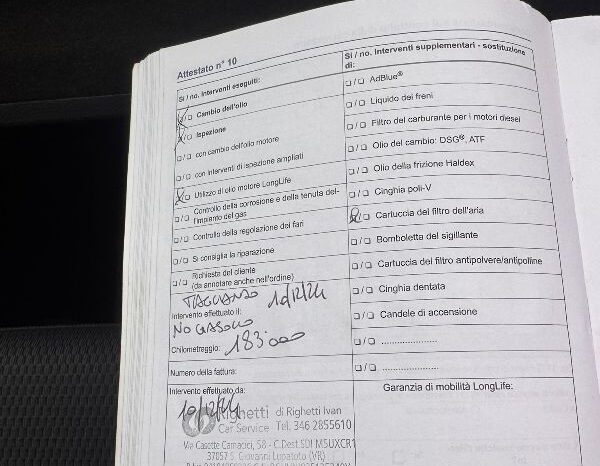 Attestato n° 10
Si / no. Interventi eseguiti:
☒/☐ Cambio dell'olio
☒/☐ Ispezione
☐/☐ con cambio dell'olio motore
☐/☐ con interventi di ispezione ampliati
☒/☐ Utilizzo di olio motore LongLife
☐/☐ Controllo della corrosione e della tenuta dell'impianto del gas
☐/☐ Controllo della regolazione dei fari
☐/☐ Si consiglia la riparazione
☐/☐ Richiesta del cliente
(da annotare anche nell'ordine)
10/12/24
Intervento effettuato il:
NO
Chilometraggio: 183.000
Numero della fattura:
Intervento effettuato da:
10/12/24
Righetti di Righetti Ivan
Car Service Tel. 346 2855610
Via Casette Camacici, 58 - C.Dest.SDI M5UXCR1
37057 S. Giovanni Lupatoto (VR)
Si / no. Interventi supplementari - sostituzione
di:
☐/☐ AdBlue®
☐/☐ Liquido dei freni
☐/☐ Filtro del carburante per i motori diesel
☐/☐ Olio del cambio: DSG®, ATF
☐/☐ Olio della frizione Haldex
☐/☐ Cinghia poli-V
☒/☐ Cartuccia del filtro dell'aria
☐/☐ Bomboletta del sigillante
☐/☐ Cartuccia del filtro antipolvere/antipolline
☐/☐ Cinghia dentata
☐/☐ Candele di accensione
☐/☐ ....................
☐/☐ ....................
Garanzia di mobilità LongLife: